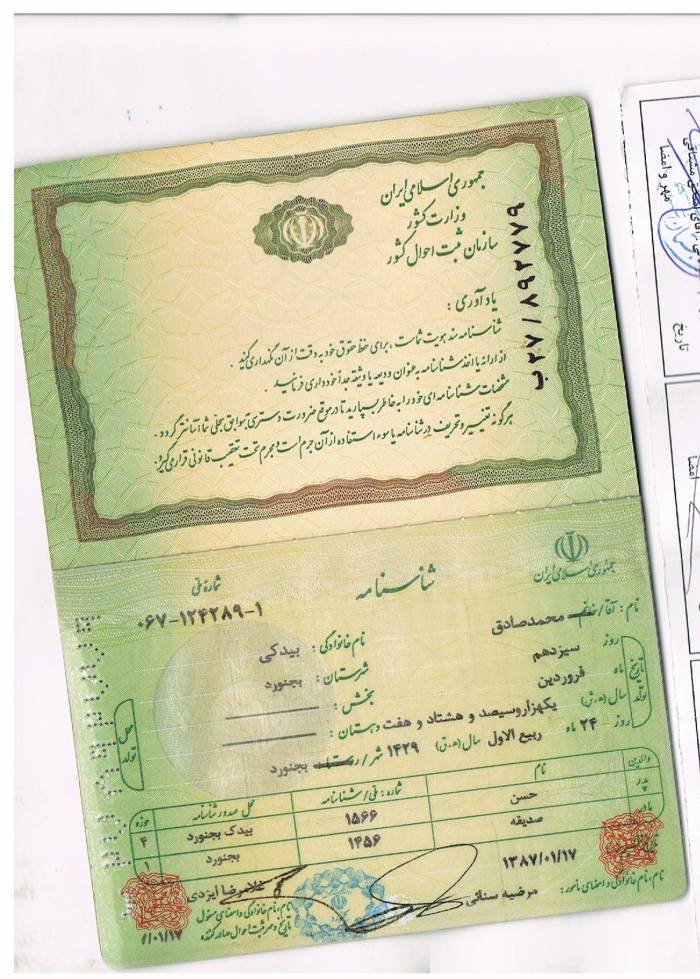 جمهوری اسلامی ایران
وزارت کشور
سازمان ثبت احوال کشور
ب۲۷ / ۸۹۲۷۷۹
یادآوری :
شناسنامه سند هویت شماست ، برای حفظ حقوق خود به دقت از آن نگهداری کنید .
از ارائه یا اخذ شناسنامه به عنوان ودیعه یا وثیقه جداً خودداری فرمائید .
مشخصات شناسنامه ای خود را به خاطر بسپارید تا در موقع ضرورت دسترسی به سوابق سجلی شما آسانتر گردد .
هرگونه تغییر و تحریف در شناسنامه یا سوء استفاده از آن جرم است و مجرم تحت تعقیب قانونی قرار می گیرد .
جمهوری اسلامی ایران
شناسنامه
شماره ملی
۰۶۷-۱۲۴۲۸۹-۱
نام : آقا / خانم محمدصادق
نام خانوادگی : بیدکی
تاریخ تولد
روز سیزدهم
ماه فروردین
سال (ه.ش) یکهزاروسیصد و هشتاد و هفت
روز ۲۴ ماه ربیع الاول سال (ه.ق) ۱۴۲۹
محل تولد
شهرستان : بجنورد
بخش :
دهستان :
شهر / روستا بجنورد
والدین نام شماره : ملی / شناسنامه محل صدور شناسنامه حوزه
پدر حسن ۱۵۶۶ بیدک بجنورد ۴
مادر صدیقه ۱۴۵۶ بجنورد ۱
۱۳۸۷/۰۱/۱۷
نام، نام خانوادگی و امضای مأمور : مرضیه سنائی
غلامرضا ایزدی
نام، نام خانوادگی و امضای مسئول
تاریخ و مهر ثبت احوال صادر کننده
/۰۱/۱۷
مهر و امضا
تاریخ
امضا